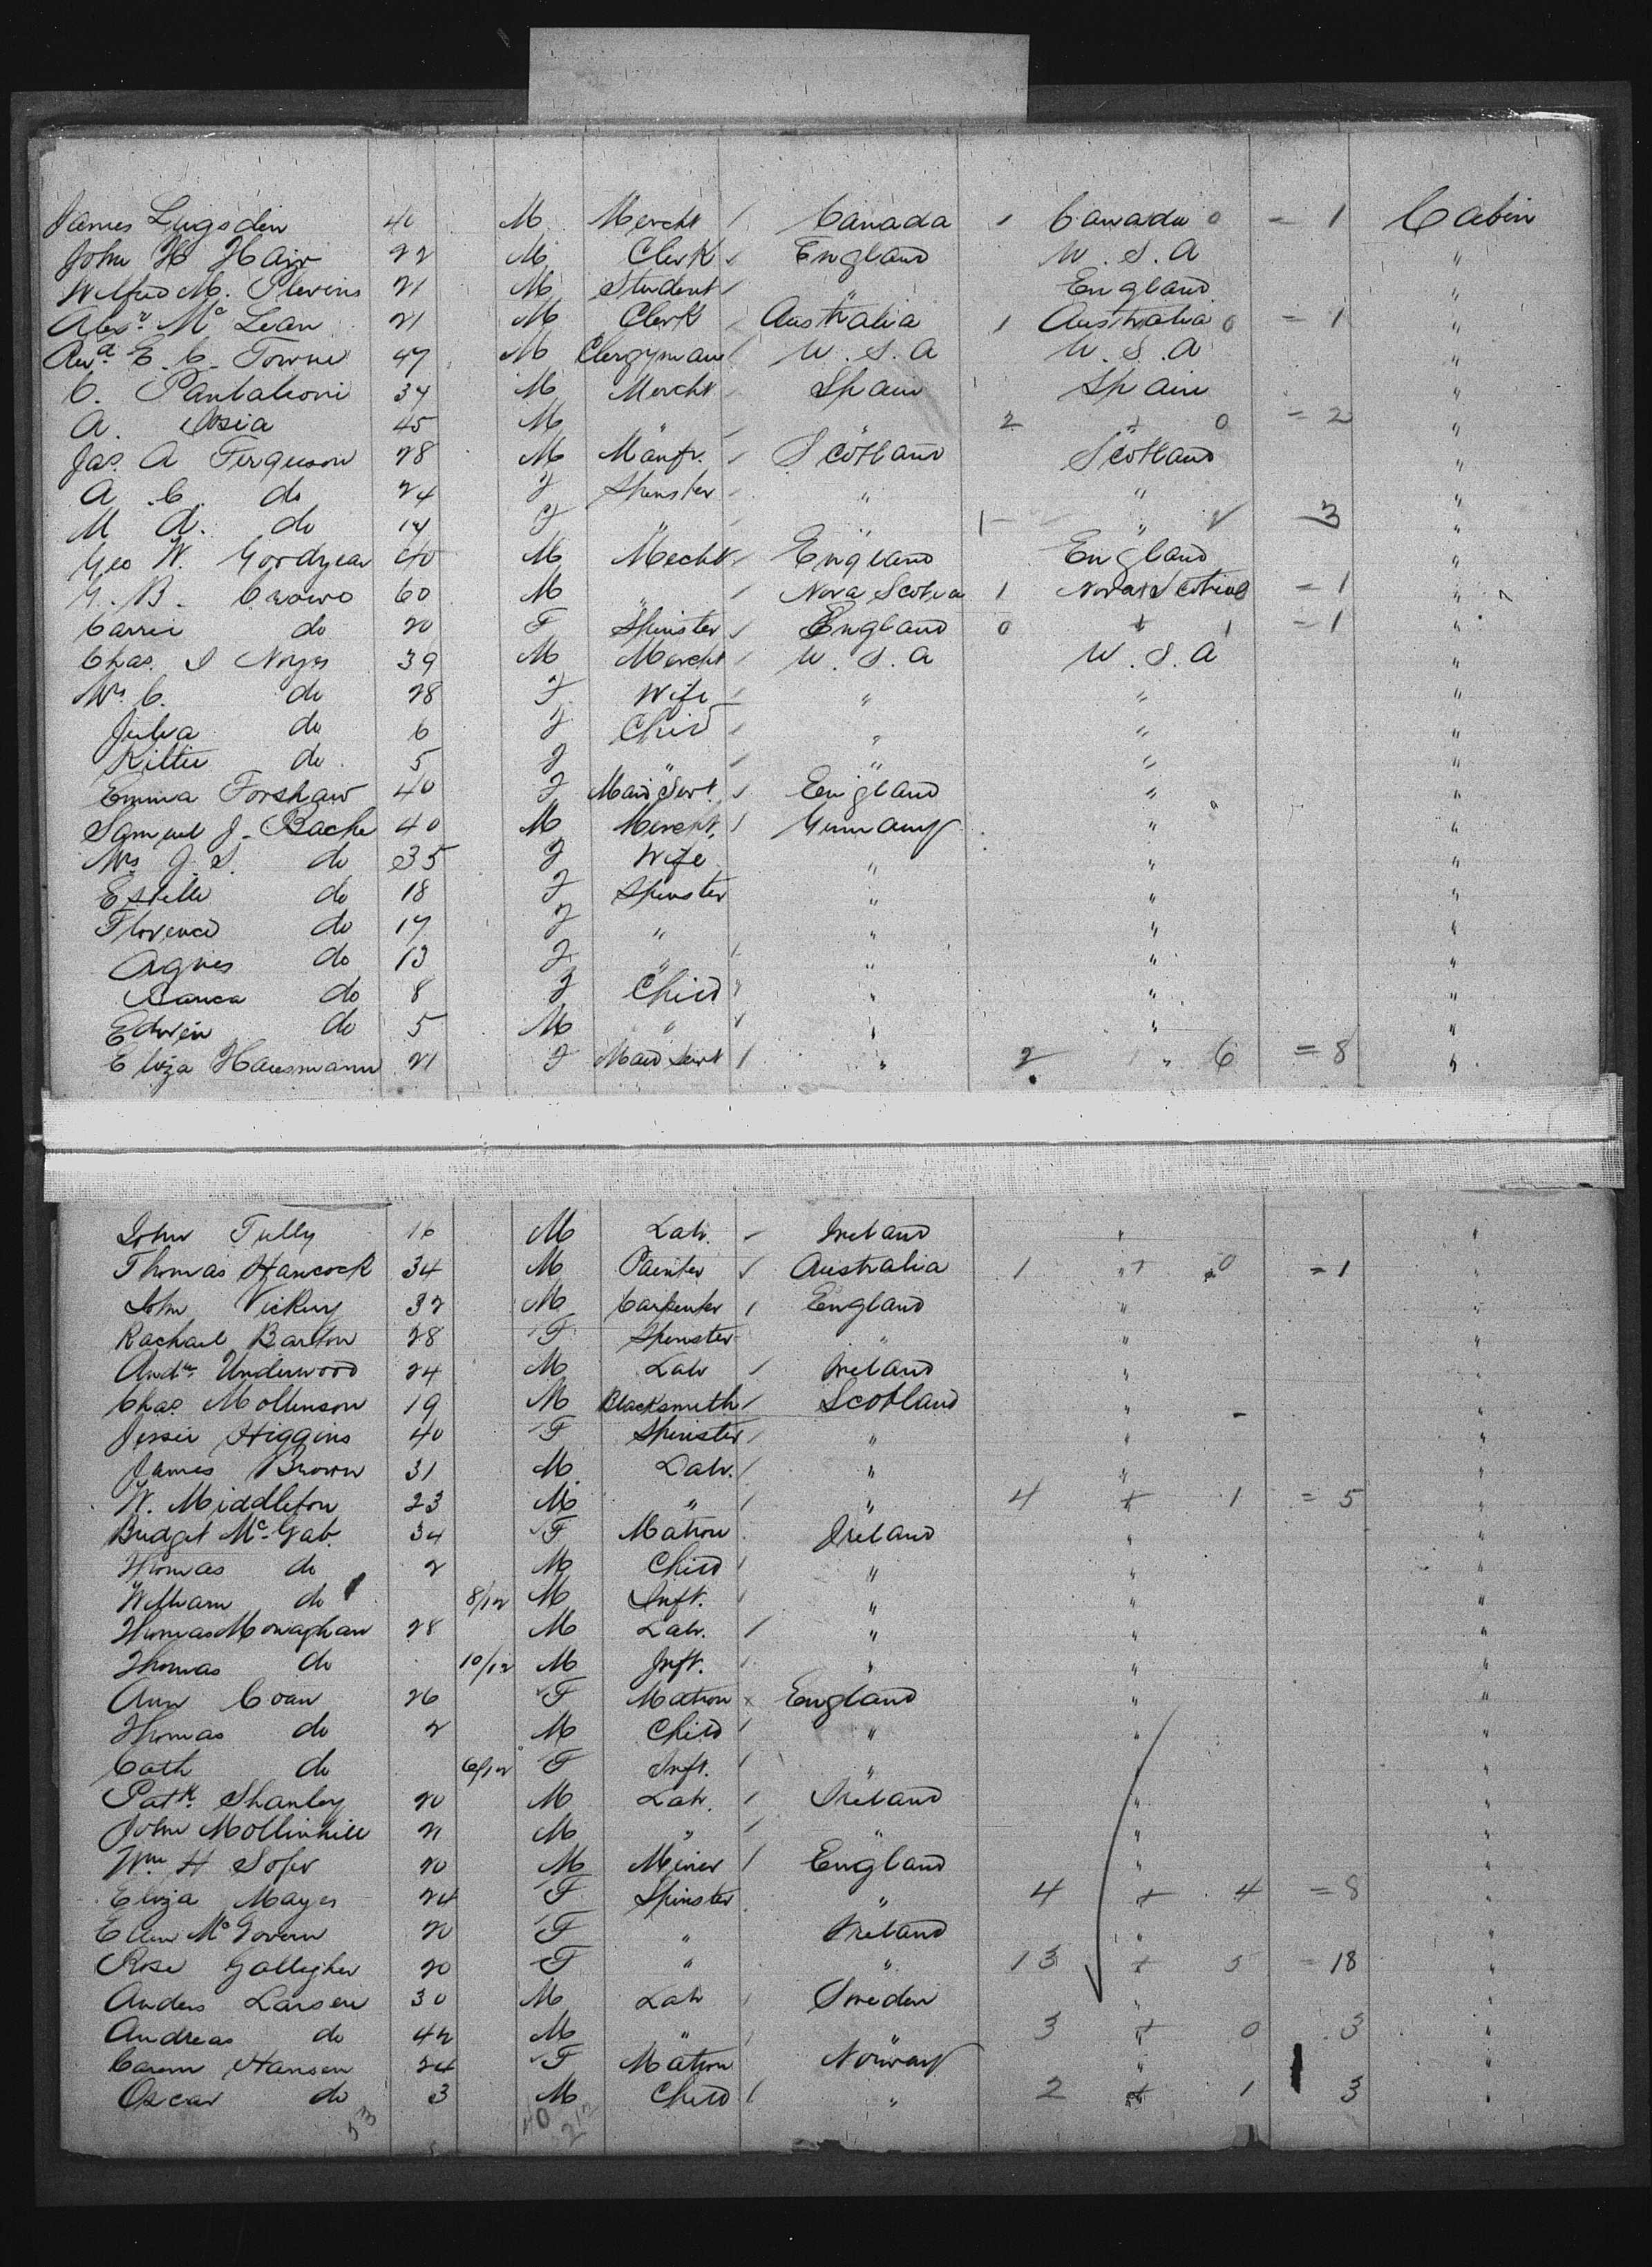 James Lugsdin 40 M Mercht / Canada 1 Canada 0 = 1 Cabin
John H Hair 22 M Clerk England U.S.A "
Wilfred M. Plevins 21 M Student " England "
Alexr. Mc Lean 21 M Clerk Australia 1 Australia 0 = 1 "
Revd. E. C. Towne 47 M Clergyman U.S.A U.S.A "
C. Pantaleoni 34 M Mercht Spain Spain "
A. 45 M " " 2 + 0 = 2 "
Jas. A Ferguson 28 M Manfr. Scotland Scotland "
A. C. do 24 F Spinster " " "
M A. do 17 F " " 1 " 2 3 "
Geo W. Goodyear 40 M Mecht England England "
G. B. Crowe 60 M " Nova Scotia 1 Nova Scotia 0 = 1 "
Carrie do 20 F Spinster England 0 + 1 = 1 "
Chas. I Noyes 39 M Mercht U.S.A U.S.A "
Mrs C. do 28 F Wife " " "
Julia do 6 F Child " " "
Kittie do. 5 F " " " "
Emma Forshaw 40 F Maid Servt. England " "
Samuel J. Bache 40 M Mercht. Germany " "
Mrs J. S. do 35 F Wife " " "
Estelle do 18 F Spinster " " "
Florence do 17 F " " " "
Agnes do 13 F " " " "
do 8 F Child " " "
Edwin do 5 M " " " "
Eliza Hausmann 21 F Maid Servt / " 2 " 6 = 8 "
John Tully 16 M Labr. Ireland " "
Thomas Hancock 34 M Painter Australia 1 + 0 = 1 "
John Vickery 32 M Carpenter England " "
Rachael Barton 28 F Spinster " " "
Andw. Underwood 24 M Labr Ireland " "
Chas. Mollinson 19 M Blacksmith Scotland " "
Jessie Higgins 40 F Spinster " " "
James Brown 31 M Labr. " " "
W. Middleton 23 M " " 4 + 1 = 5 "
Bridget Mc Gab. 34 F Matron Ireland " "
Thomas do 2 M Child " " "
William do 8/12 M Inft. " " "
Thomas Monaghan 28 M Labr. " " "
Thomas do 10/12 M Inft. " " "
Ann Coan 26 F Matron England " "
Thomas do 2 M Child " " "
Cath do 6/12 F Inft. " " "
Patk. Shanley 20 M Labr. Ireland " "
John Mollinhill 21 M " " " "
Wm H Soper 20 M Miner England " "
Eliza Mayes 24 F Spinster " 4 + 4 = 8 "
Ellen McGovern 20 F " Ireland " "
Rose Gallegher 20 F " " 13 + 5 = 18 "
Anders Larsen 30 M Labr Sweden " "
Andreas do 42 M " " 3 + 0 3 "
Caren Hansen 24 F Matron Norway " "
Oscar do 3 M Child " 2 + 1 3 "
53 40 2/12